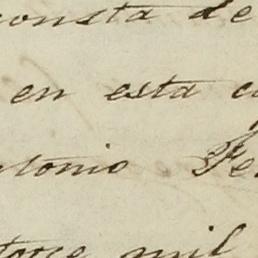 consta de
en esta
ntonio Fe
torce mil